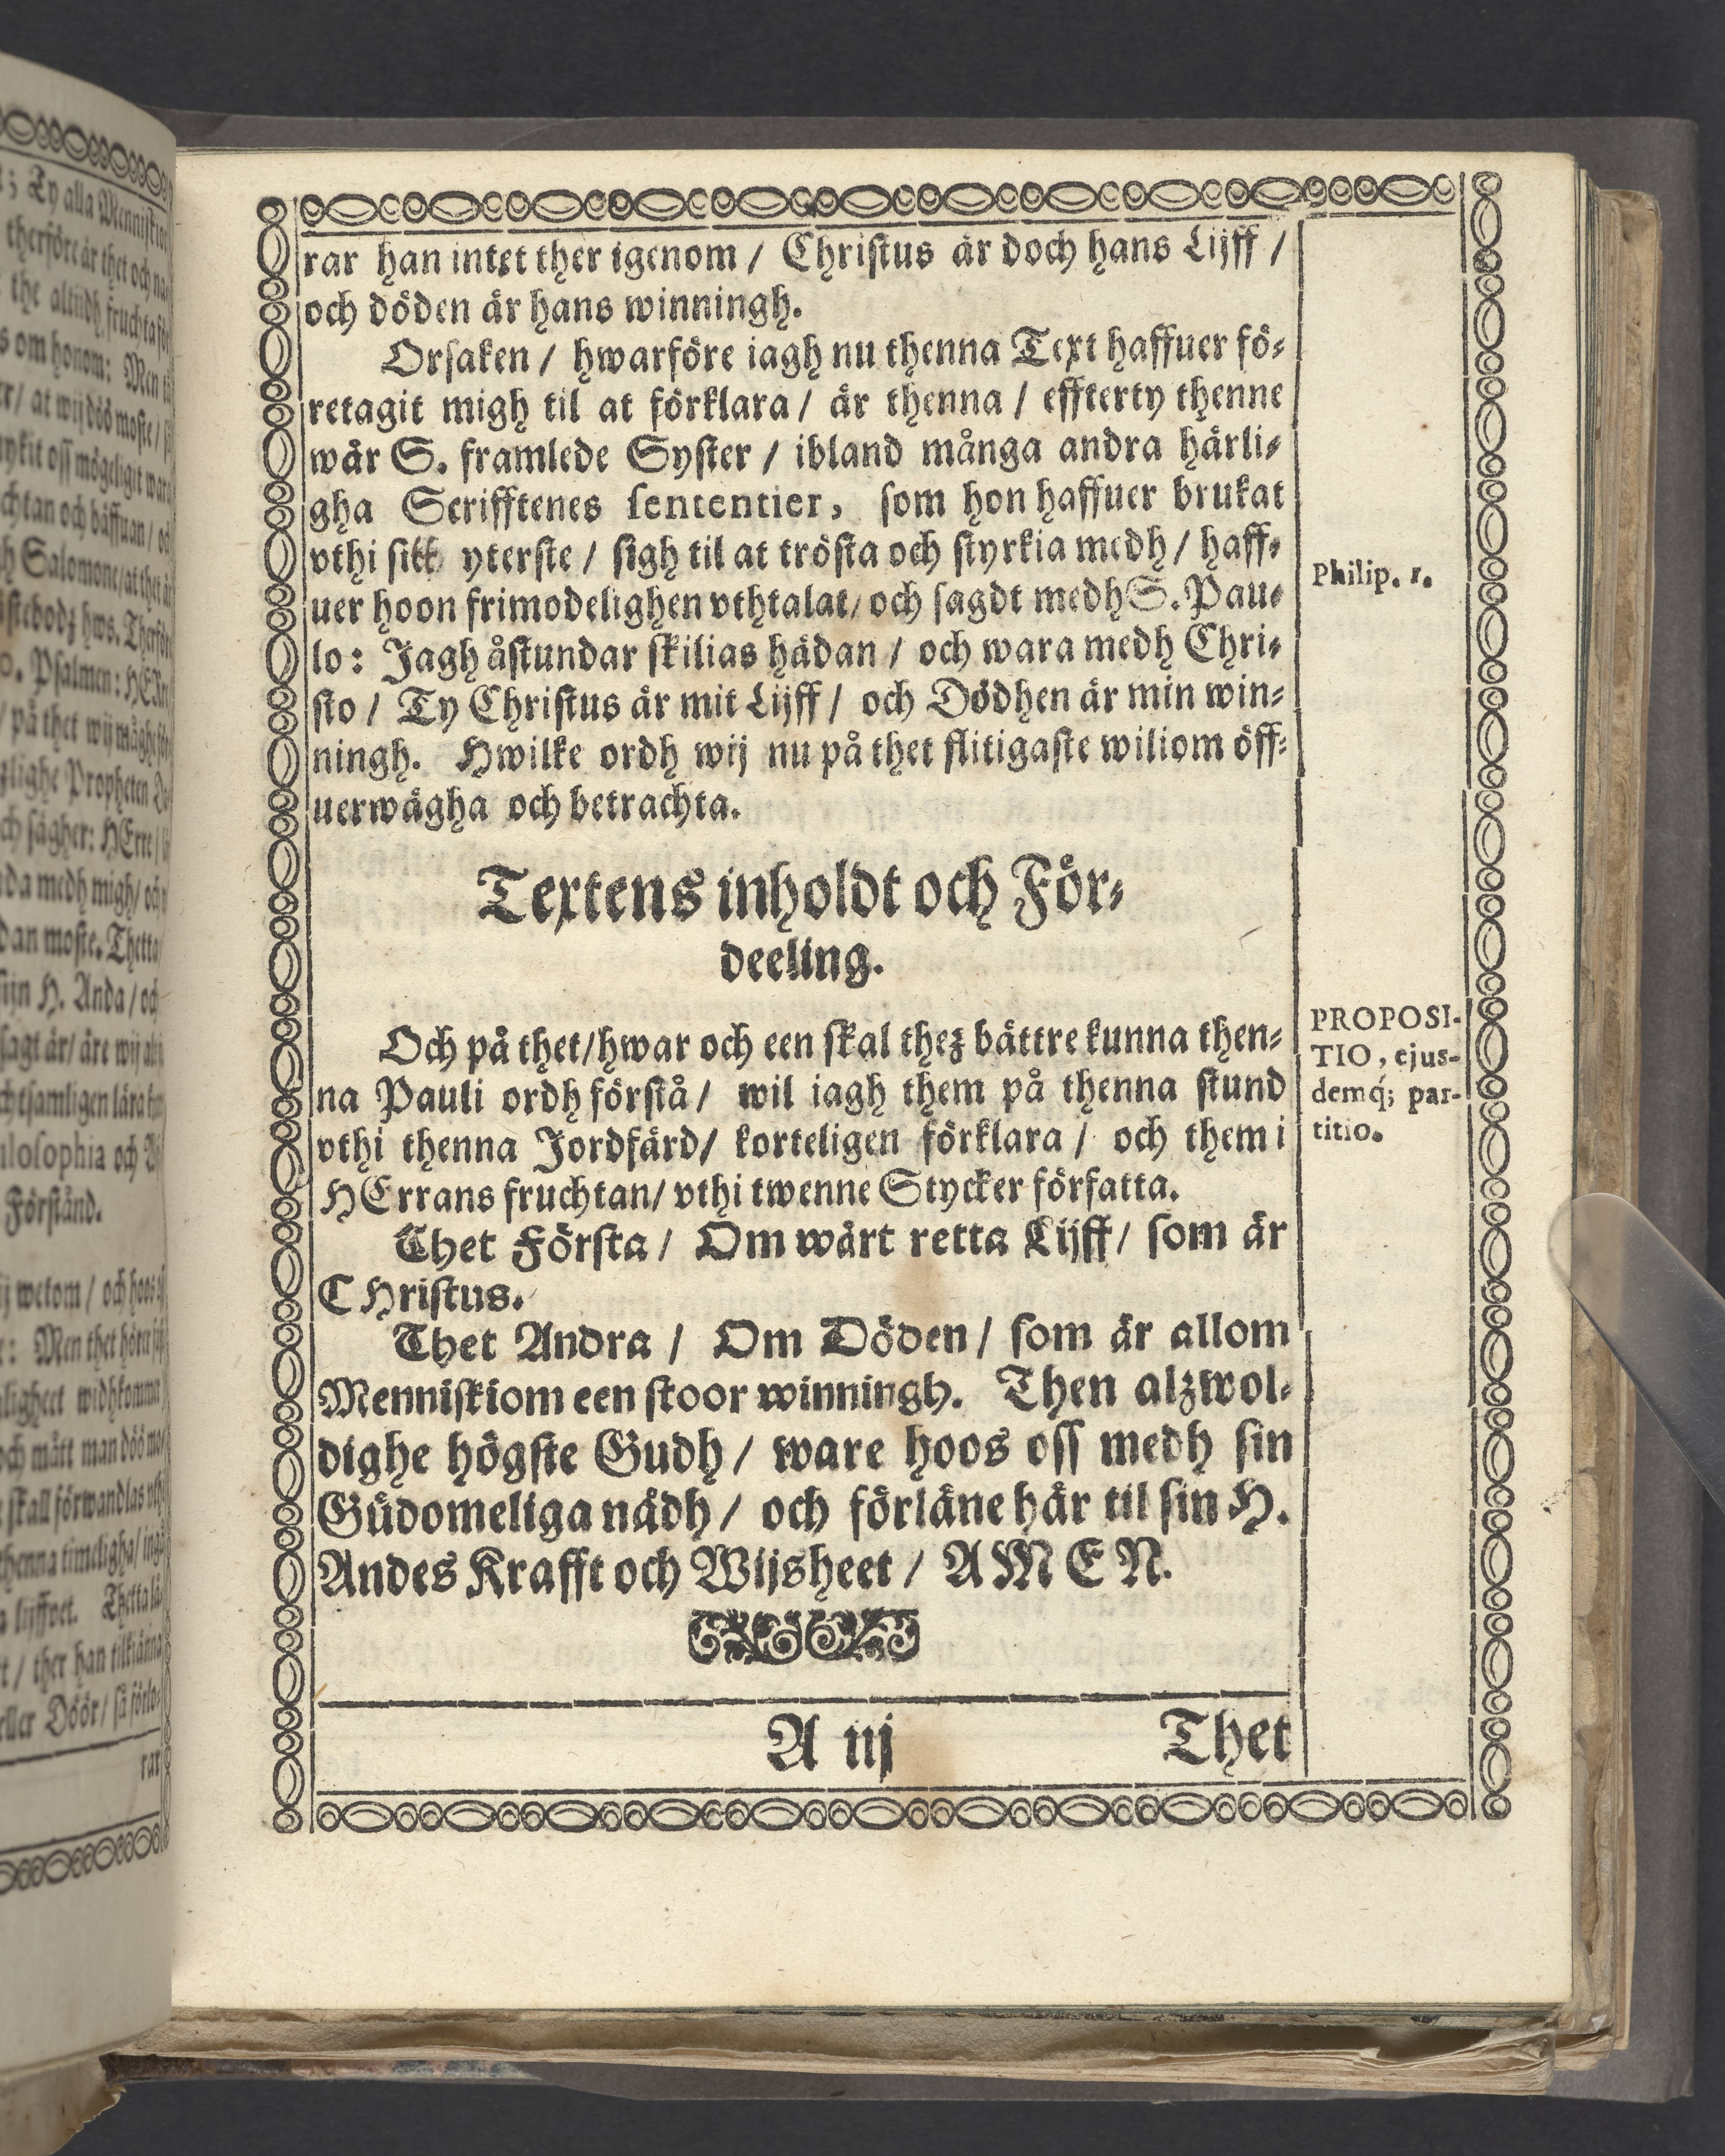 rar han intet ther igenom / Christus är doch hans Lijff /
och döden är hans winningh.
Orsaken / hwarföre iagh nu thenna Text haffuer fö-
retagit migh til at förklara / är thenna / effterty thenne
wår S. framlede Syster / ibland många andra härli-
gha Scrifftenes sententier, som hon haffuer brukat
vthi sitt yterste / sigh til at trösta och styrkia medh / haff-
uer hoon frimodelighen vthtalat / och sagdt medh S. Pau-
lo: Jagh åstundar skilias hädan / och wara medh Chri-
sto / Ty Christus är mit Lijff / och Dödhen är min win-
ningh. Hwilke ordh wij nu på thet flitigaste wiliom öff-
uerwägha och betrachta.
Philip. 1.
Textens inholdt och För-
deeling.
Och på thet/hwar och een skal thez bättre kunna then-
na Pauli ordh förstå / wil iagh them på thenna stund
vthi thenna Jordfärd/ korteligen förklara / och them i
HErrans fruchtan/ vthi twenne Stycker författa.
PROPOSI-
TIO, ejus-
demq́; par-
titio.
Thet Första / Om wårt retta Lijff / som är
CHristus.
Thet Andra / Om Döden / som är allom
Menniskiom een stoor winningh. Then alzwol-
dighe högste Gudh / ware hoos oss medh sin
Gudomeliga nådh / och förläne här til sin H.
Andes Krafft och Wijsheet / AMEN.
A iij
Thet